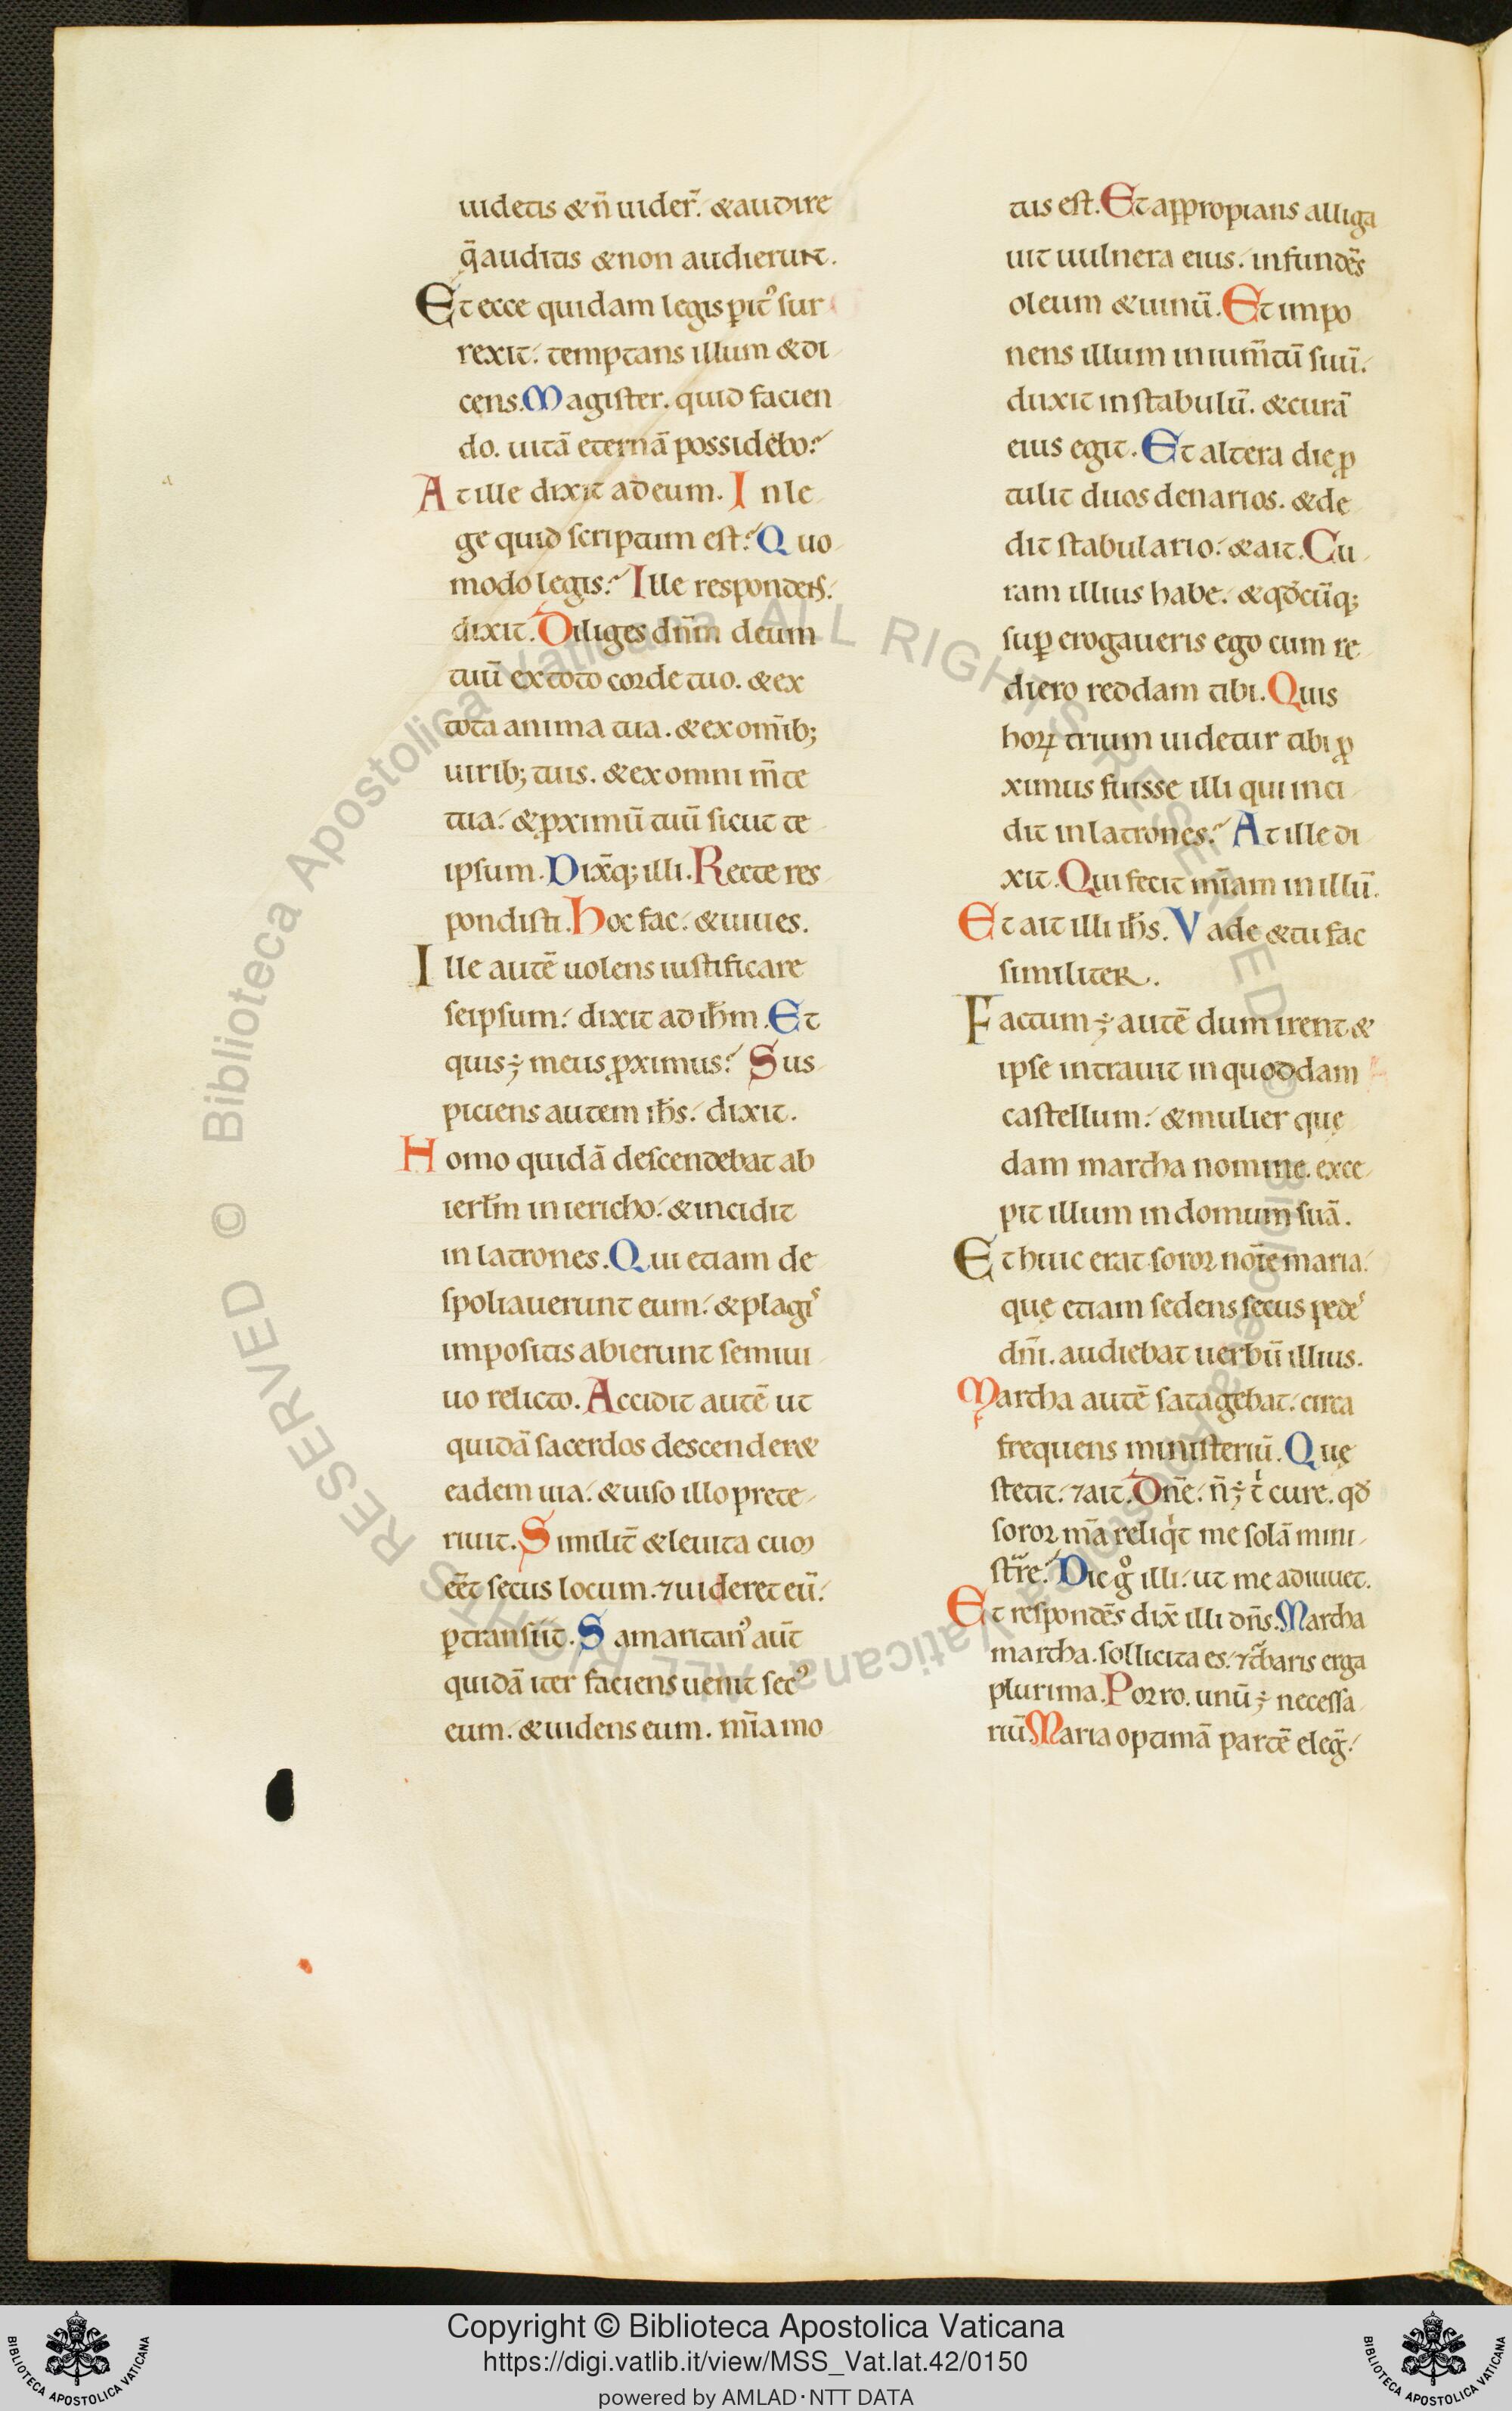 uidetis & n̄ uider̄. & audire
q̄ auditis & non audierunt.
Et ecce quidam legis ꝑit᾿ sur
rexit. temptans illum & di
cens. Magister. quid facien
do. uitā eternā possidebo?
At ille dixit ad eum. In le
ge quid scriptum est? Quo
modo legis? Ille respondens.
dixit. Diliges dn̄m deum
tuū ex toto corde tuo. & ex
tota anima tua. & ex om̄ib;
uirib; tuis. & ex omni m̄te
tua. & ꝓximū tuū sicut te
ipsum. Dix̄q; illi. Recte res
pondisti. Hoc fac. & uiues.
Ille autē uolens iustificare
seipsum. dixit ad ih̄m. Et
quis ÷ meus ꝓximus? Sus
piciens autem ih̄s. dixit.
Homo quidā descendebat ab
ierłm in iericho. & incidit
in latrones. Qui etiam de
spoliauerunt eum. & plagiˢ
impositis abierunt semiui
uo relicto. Accidit autē ut
quidā sacerdos descender&
eadem uia. & uiso illo prete
riuit. Similit̄ & leuita cum
eēt secus locum. ⁊ uideret eū.
ꝑtransiit. Samaritan᾿ aūt
quidā iter faciens uenit sec᾿
eum. & uidens eum. mīa mo
tus est. Et appropians alliga
uit uulnera eius. infundēs
oleum & uinū. Et impo
nens illum in ium̄tū suū.
duxit in stabulū. & curā
eius egit. Et altera die ꝓ
tulit duos denarios. & de
dit stabulario. & ait. Cu
ram illius habe. & qđcūq;
suꝑ erogaueris ego cum re
diero reddam tibi. Quis
hoꝝ trium uidetur tibi ꝓ
ximus fuisse illi qui inci
dit in latrones? At ille di
xit. Qui fecit mīam in illū.
Et ait illi ih̄s. Vade & tu fac
similiter.
Factum ÷ autē dum irent &
ipse intrauit in quoddam
castellum. & mulier quę
dam martha nomine. exce
pit illum in domum suā.
Et huic erat soror noīe maria.
quę etiam sedens secus pedeˢ
dn̄i. audiebat uerbū illius.
Martha autē satagebat. circa
frequens ministeriū. Quę
stetit. ⁊ ait. Dn̄e. n̄ ÷ t̍ cure. qđ
soror m̄a reliq̍t me solā mini
str̄e? Dic g̊ illi. ut me adiuuet.
Et respondēs dix̄ illi dn̄s. Martha
martha. sollicita es. ⁊ t᷑baris erga
plurima. Porro. unū ÷ necessa
riū Maria optimā partē eleḡ.
© Biblioteca Apostolica Vaticana ALL RIGHTS RESERVED
© Biblioteca Apostolica Vaticana ALL RIGHTS RESERVED
Copyright © Biblioteca Apostolica Vaticana
https://digi.vatlib.it/view/MSS_Vat.lat.42/0150
powered by AMLAD·NTT DATA
BIBLIOTECA APOSTOLICA VATICANA
BIBLIOTECA APOSTOLICA VATICANA